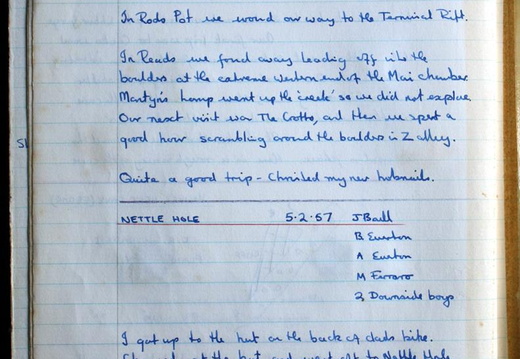 In Rods Pot we wound our way to the Terminal Rift.
In Reads we found away leading off into the
boulders at the extreme western end of the Main chamber
Martyn's lamp went up the 'creek' so we did not explore
Our next visit was The Grotto, and then we spent a
good hour scrambling around the boulders in Z alley.
Quite a good trip - Christed my new hobnails.
NETTLE HOLE 5.2.57 J Baill
B Ewston
A Ewston
M Ferraro
2 Downside boys
I got up to the hut on the back of dads bike.
at the hut and went off to Nettle Hole